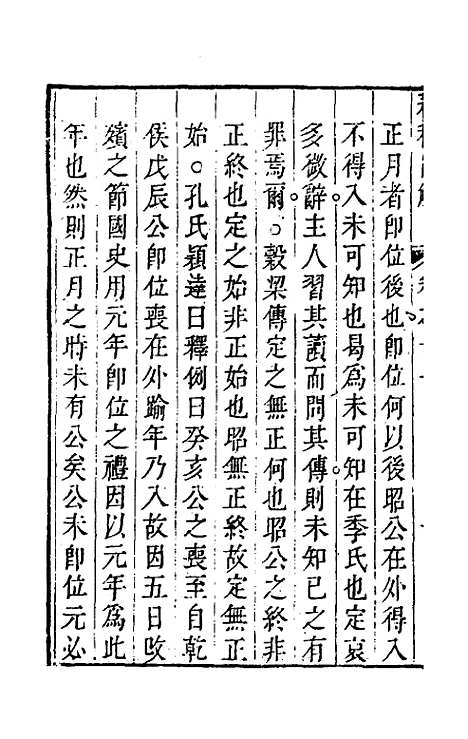 正月者卽位後也卽位何以後昭公在外得入
不得入未可知也曷爲未可知在季氏也定哀
多微辭主人習其讀而問其傳則未知已之有
罪焉爾○穀梁傳定之無正何也昭公之終非
正終也定之始非正始也昭無正終故定無正
始○孔氏穎達曰釋例曰癸亥公之喪至自乾
侯戊辰公卽位喪在外踰年乃入故因五日改
殯之節國史用元年卽位之禮因以元年爲此
年也然則正月之時未有公矣公未卽位元必